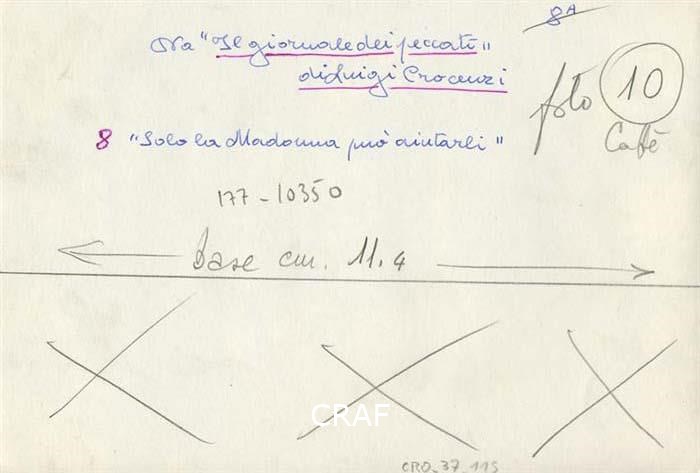 8A
Da "Il giornale dei peccati"
di Luigi Crocenzi
foto 10
Caffè
8 "Solo la Madonna può aiutarli"
177-10350
base cm. 11.4
CRAF
CRO_37_115